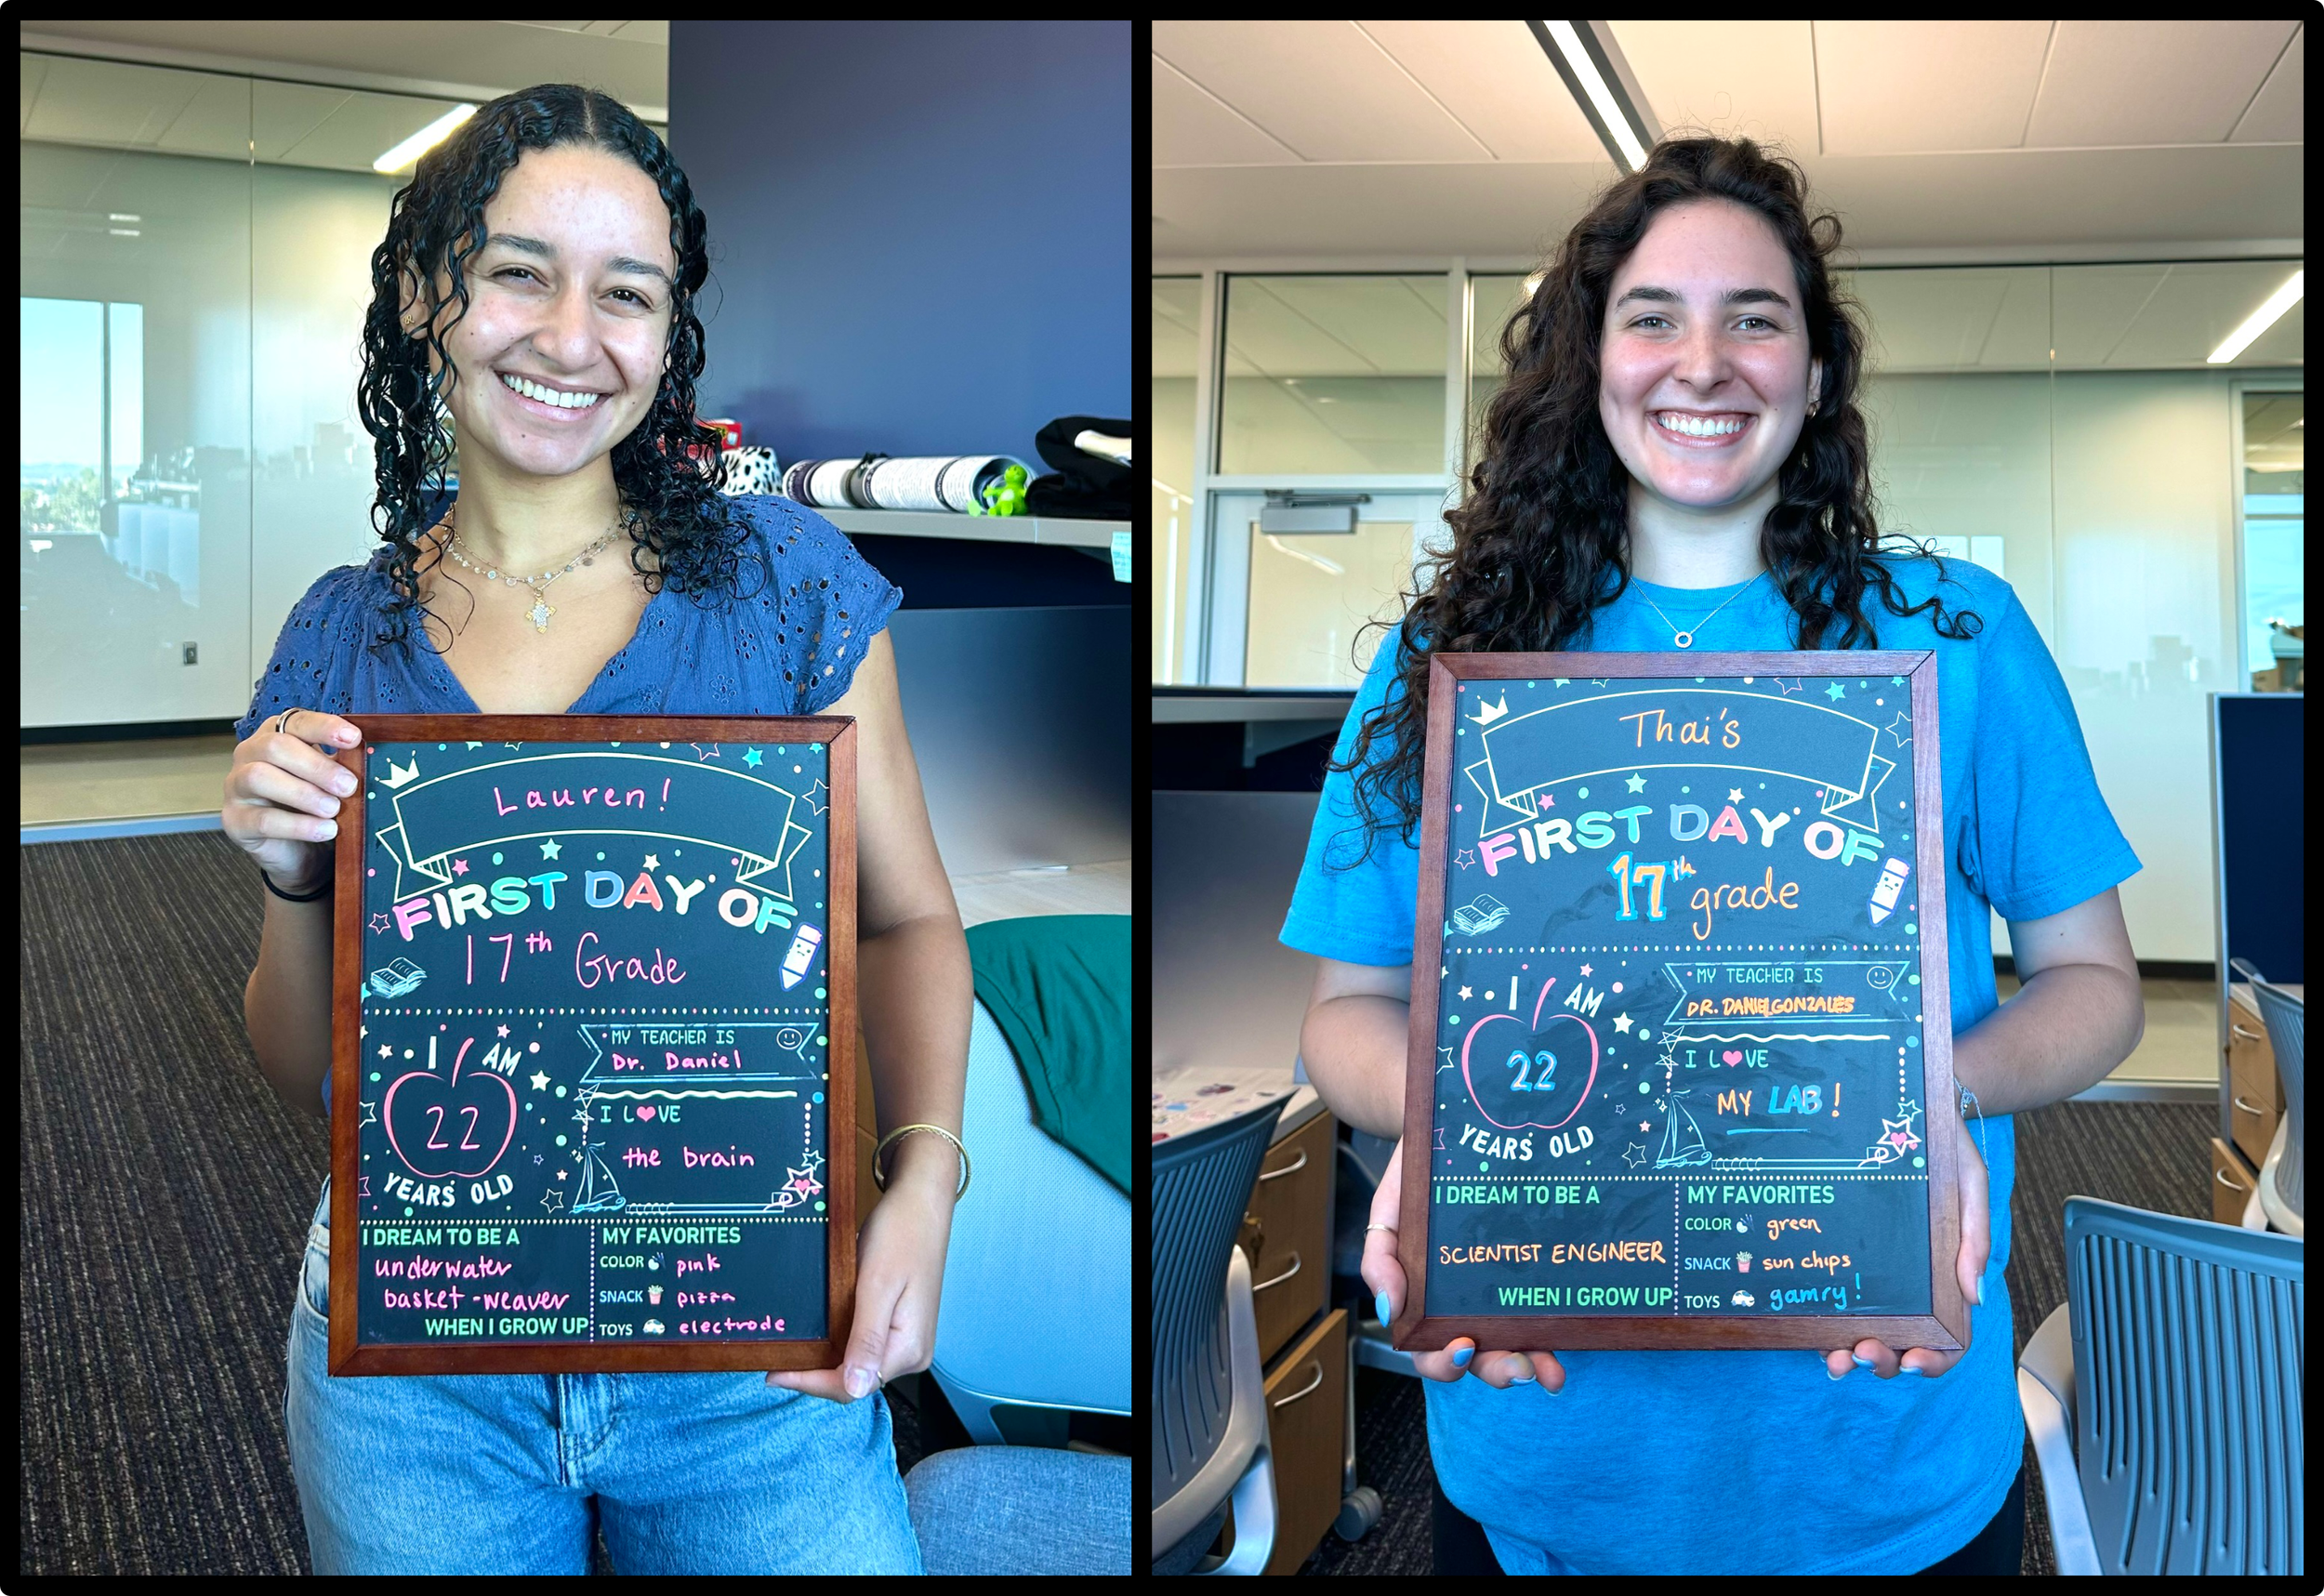 Lauren!
FIRST DAY OF
17th Grade
I AM
22
YEARS OLD
MY TEACHER IS
Dr. Daniel
I LOVE
the brain
I DREAM TO BE A
underwater
basket-weaver
WHEN I GROW UP
MY FAVORITES
COLOR pink
SNACK pizza
TOYS electrode
Thai's
FIRST DAY OF
17th grade
I AM
22
YEARS OLD
MY TEACHER IS
DR. DANIEL GONZALES
I LOVE
MY LAB!
I DREAM TO BE A
SCIENTIST ENGINEER
WHEN I GROW UP
MY FAVORITES
COLOR green
SNACK sun chips
TOYS gamry!